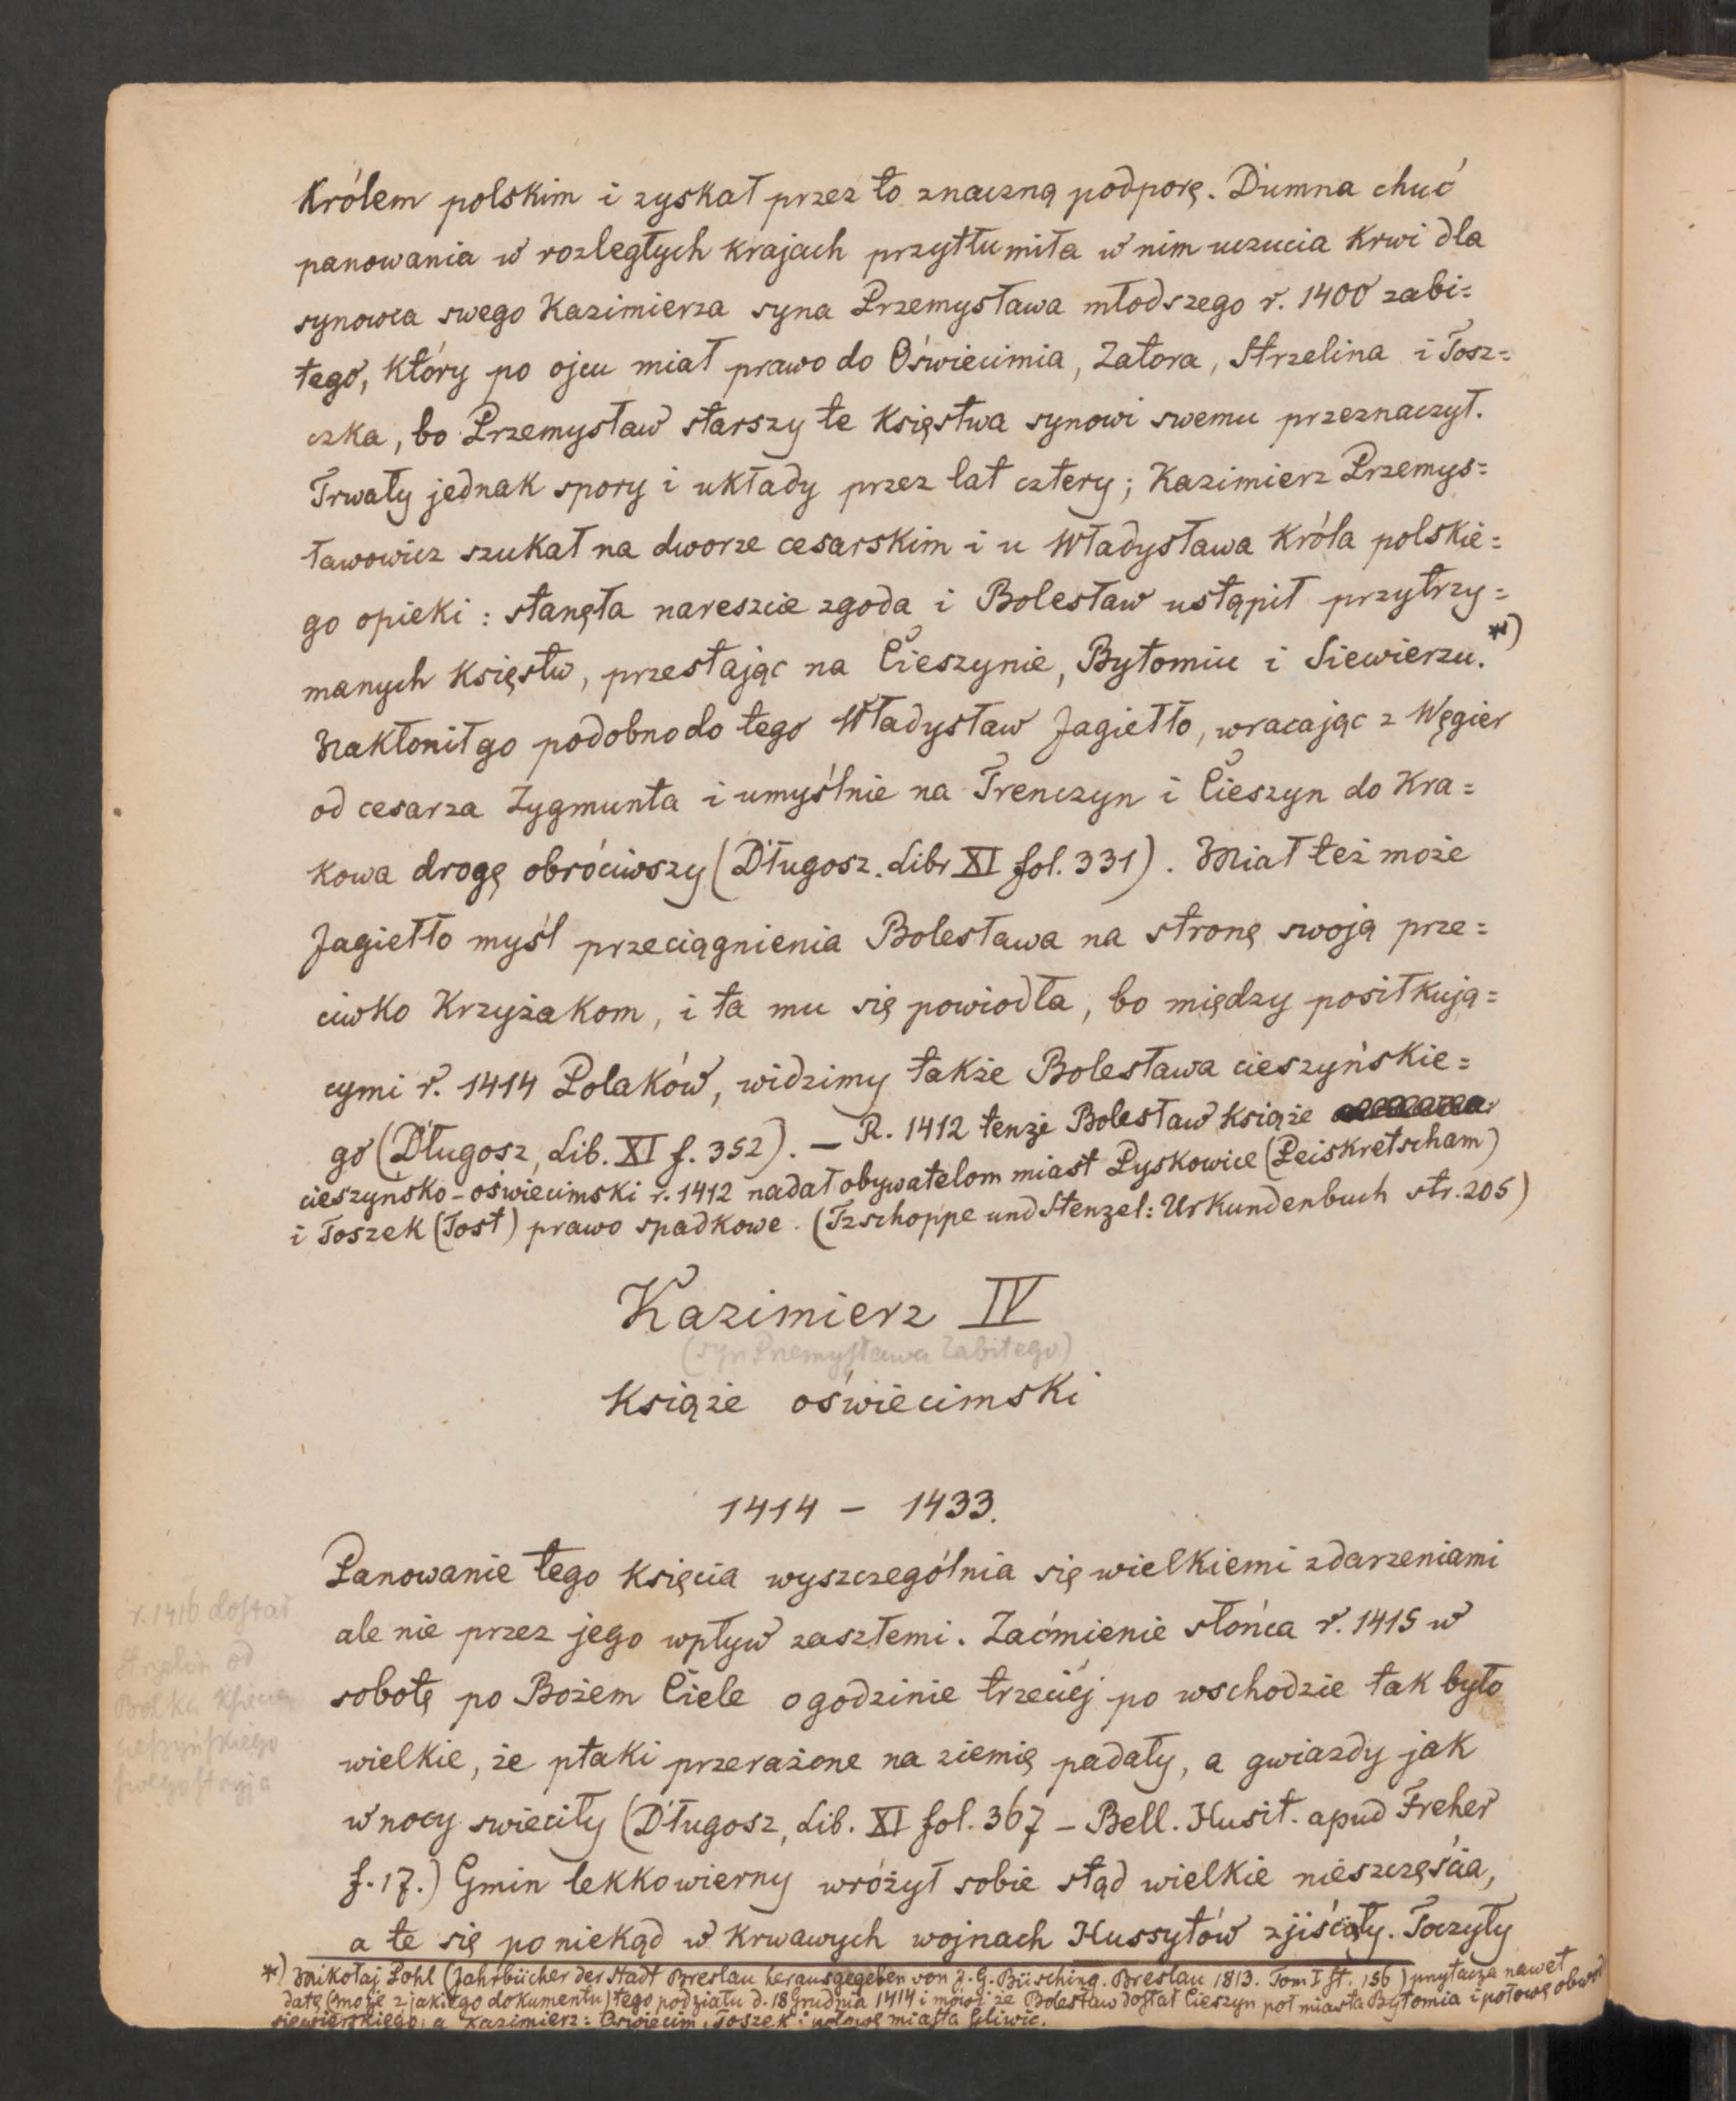 Królem polskim i zyskał przez to znaczną podporę. Dumna chuć
panowania w rozległych krajach przytłumiła w nim uczucia krwi dla
synowca swego Kazimierza syna Przemysława młodszego r. 1400 zabi=
tego, który po ojcu miał prawo do Oświecimia, Zatora, Strzelina i Tosz=
czka, bo Przemysław starszy te Księstwa synowi swemu przeznaczył.
Trwały jednak spory i układy przez lat cztery; Kazimierz Przemys=
ławowicz szukał na dworze cesarskim i u Władysława Króla polskie=
go opieki : stanęła nareszcie zgoda i Bolesław ustąpił przytrzy=
manych Księstw, przestając na Cieszynie, Bytomiu i Siewierzu.*)
Nakłonił go podobno do tego Władysław Jagiełło, wracając z Węgier
od cesarza Zygmunta i umyślnie na Trenczyn i Cieszyn do Kra=
kowa drogę obróciwszy (Długosz. Libr XI fol. 331). Miał też może
Jagiełło myśl przeciągnienia Bolesława na stronę swoją prze=
ciwko Krzyżakom, i ta mu się powiodła, bo między posiłkują=
cymi r. 1414 Polaków, widzimy także Bolesława cieszyńskie=
go (Długosz, Lib. XI f. 352). — R. 1412 tenże Bolesław Książe
cieszyńsko-oświecimski r. 1412 nadał obywatelom miast Pyskowice (Peiskretscham)
i Toszek (Tost) prawo spadkowe. (Tzschoppe und Stenzel: Urkundenbuch str. 205)
Kazimierz IV
(syn Przemysława Zabitego)
Książe oświecimski
1414 — 1433.
Panowanie tego Księcia wyszczególnia się wielkiemi zdarzeniami
ale nie przez jego wpływ zaszłemi. Zaćmienie słońca r. 1415 w
sobotę po Bożem Ciele o godzinie trzeciéj po wschodzie tak było
wielkie, że ptaki przerażone na ziemię padały, a gwiazdy jak
w nocy swieciły (Długosz, Lib. XI fol. 367 — Bell. Husit. apud Freher
f. 17.) Gmin lekkowierny wróżył sobie stąd wielkie nieszczęścia,
a te się poniekąd w krwawych wojnach Hussytów zjiściały. Toczyły
r. 1416 dostał
Strzelin od
Bolka Księcia
cieszyńskiego
swego stryja
*) Mikołaj Pohl (Jahrbücher der Stadt Breslau herausgegeben von J. G. Büsching. Breslau 1813. Tom I st. 156) przytacza nawet
datę (może z jakiego dokumentu) tego podziału d. 18 Grudnia 1414 i mówi że Bolesław dostał Cieszyn poł miasta Bytomia i połowę obwod
siewierskiego, a Kazimierz: Oświecim, Toszek i połowę miasta Gliwic.